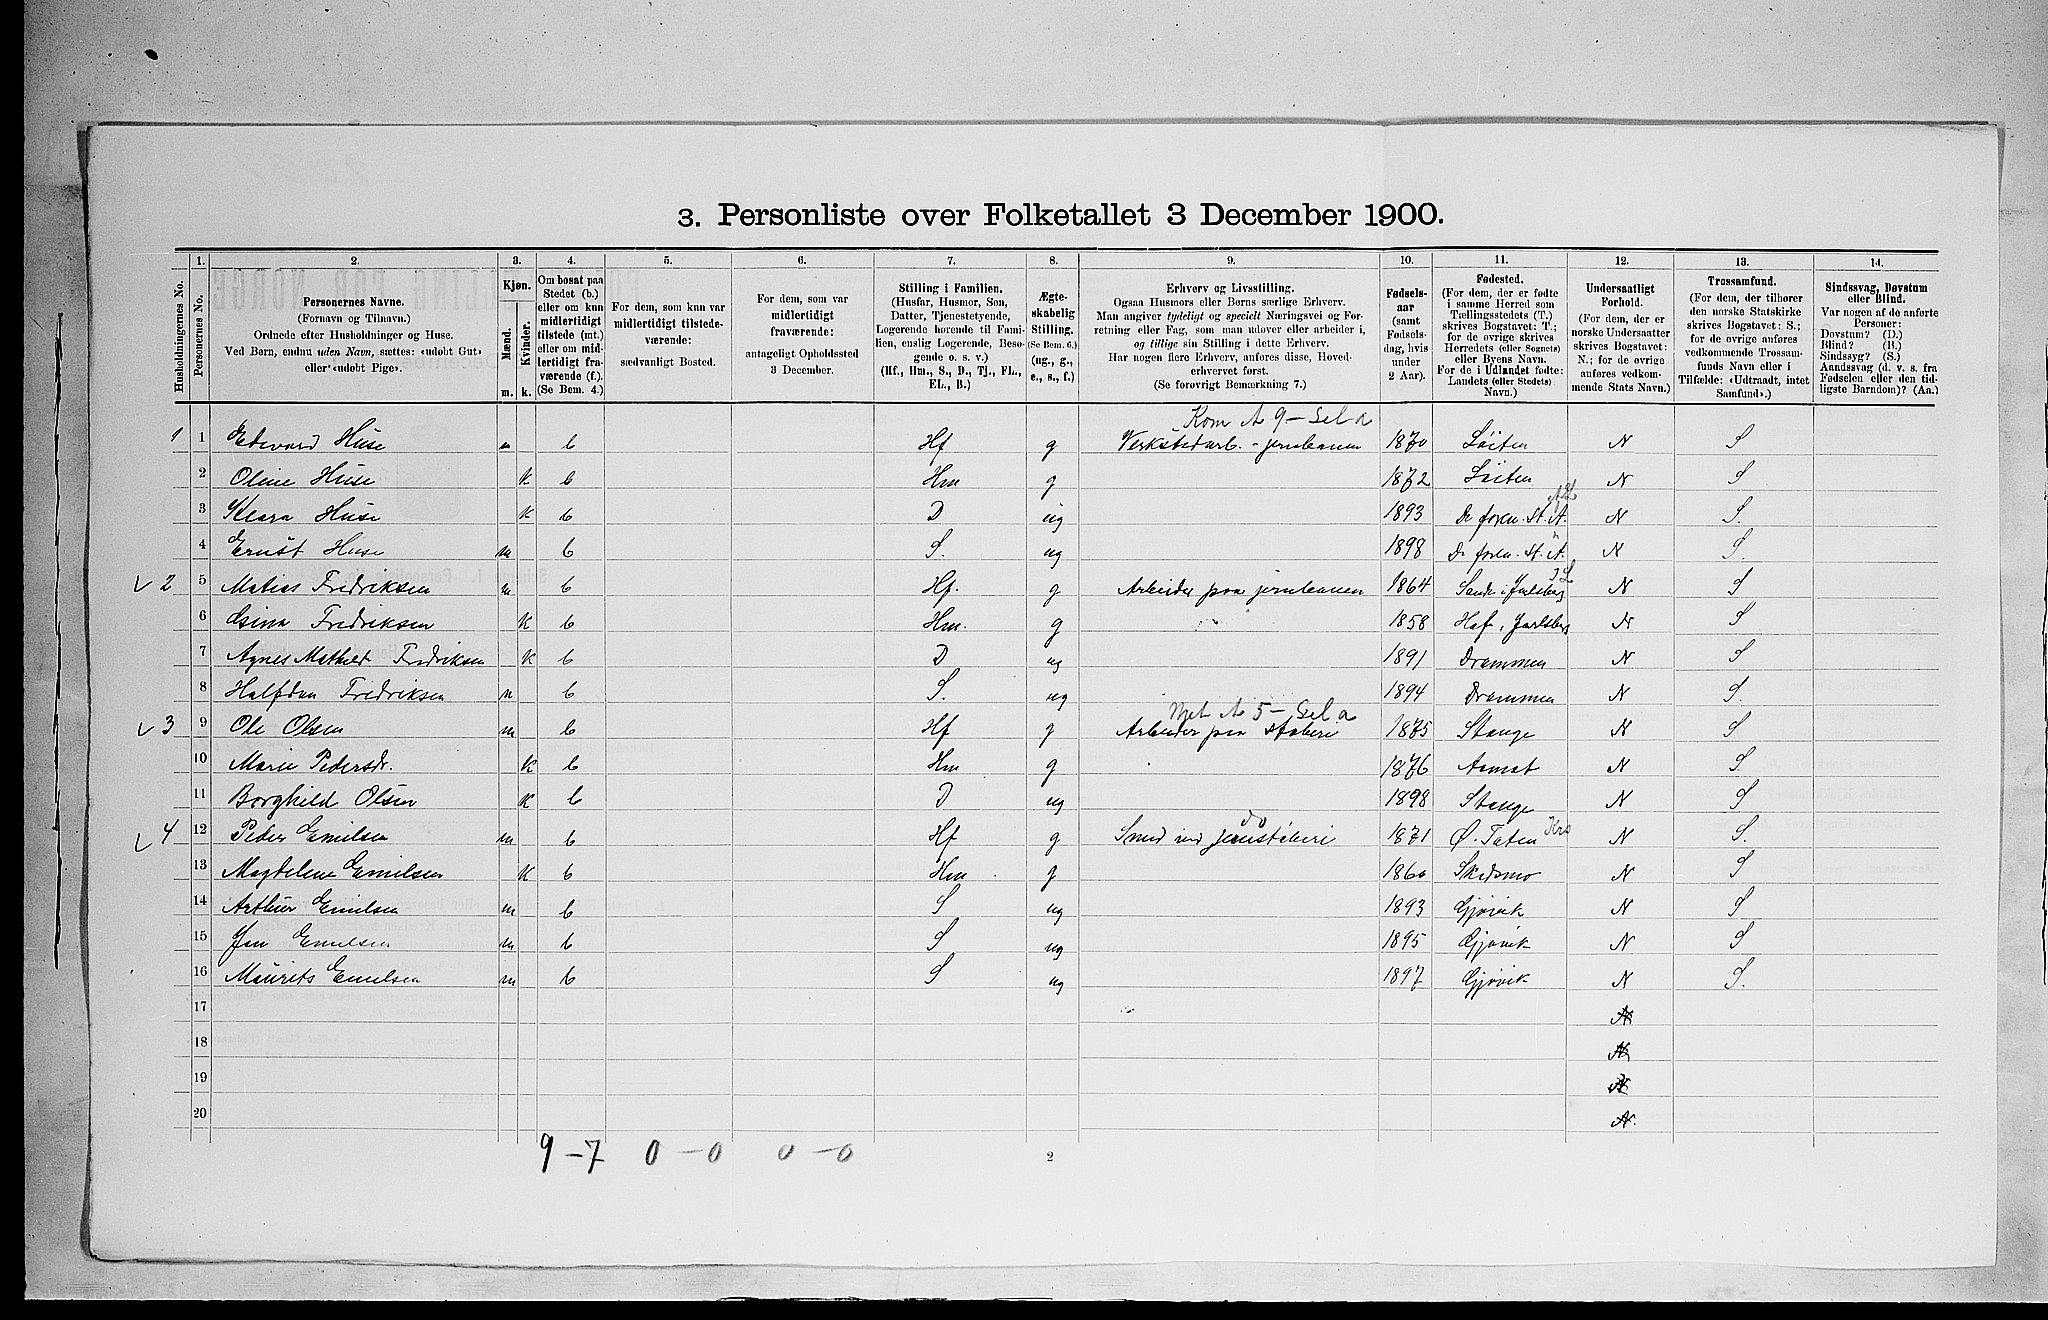 3. Personliste over Folketallet 3 December 1900.
1. 2. 3. 4. 5. 6. 7. 8. 9. 10. 11. 12. 13. 14.
Husholdningernes No.
Personernes No.
Personernes Navne.
(Fornavn og Tilnavn.)
Ordnede efter Husholdninger og Huse.
Ved Børn, endnu uden Navn, sættes: «udøbt Gut»
eller «udøbt Pige».
Kjøn.
Mænd.
Kvinder.
m. k.
Om bosat paa
Stedet (b.)
eller om kun
midlertidigt
tilstede (mt.)
eller om mid-
lertidigt fra-
værende (f.).
(Se Bem. 4.)
For dem, som kun var
midlertidigt tilstede-
værende:
sædvanligt Bosted.
For dem, som var
midlertidigt
fraværende:
antageligt Opholdssted
3 December.
Stilling i Familien.
(Husfar, Husmor, Søn,
Datter, Tjenestetyende,
Logerende hørende til Fami-
lien, enslig Logerende, Besø-
gende o. s. v.)
(Hf., Hm., S., D., Tj., FL.,
EL., B.)
Ægte-
skabelig
Stilling.
(Se Bem. 6.)
(ug., g.,
e., s., f.)
Erhverv og Livsstilling.
Ogsaa Husmors eller Børns særlige Erhverv.
Man angiver tydeligt og specielt Næringsvei og For-
retning eller Fag, som man udøver eller arbeider i,
og tillige sin Stilling i dette Erhverv.
Har nogen flere Erhverv, anføres disse, Hoved-
erhvervet først.
(Se forøvrigt Bemærkning 7.)
Fødsels-
aar
(samt
Fødsels-
dag, hvis
under
2 Aar).
Fødested.
(For dem, der er fødte
i samme Herred som
Tællingsstedets (T.)
skrives Bogstavet: T.;
for de øvrige skrives
Herredets (eller Sognets)
eller Byens Navn.
For de i Udlandet fødte:
Landets (eller Stedets)
Navn.)
Undersaatligt
Forhold.
(For dem, der er
norske Undersaatter
skrives Bogstavet:
N.; for de øvrige
anføres vedkom-
mende Stats Navn.)
Trossamfund.
(For dem, der tilhører
den norske Statskirke
skrives Bogstavet: S.;
for de øvrige anføres
vedkommende Trossam-
funds Navn eller i
Tilfælde: «Udtraadt, intet
Samfund».)
Sindssvag, Døvstum
eller Blind.
Var nogen af de anførte
Personer:
Døvstum? (D.)
Blind? (B.)
Sindssyg? (S.)
Aandssvag (d. v. s. fra
Fødselen eller den tid-
ligste Barndom)? (Aa.)
Kom A 9 - Gel a
1 1 Edevard Huse m b Hf g Verkstedarb. - jernbanen 1870 Løiten N S
2 Oline Huse K b Hm g 1872 Løiten N S
3 Klara Huse K b D ug 1893 De foren. St. i A. N S.
4 Ernst Huse m b S. ug 1898 De foren. St. i A. N S.
2 5 Matias Fredriksen m b Hf. g Arbeider paa jernbanen 1864 Sande i Jarlsberg N S
6 Fredriksen K b Hm. g 1858 Hof i Jarlsberg N S
7 Agnes Mathild Fredriksen K b D ug 1891 Drammen N S
8 Halfdan Fredriksen m b S. ug 1894 Drammen N S.
A 5 - Gel a
3 9 Ole Olsen m b Hf g Arbeider paa støberi 1875 Stange N S
10 Marie Pedersdr. K b Hm g 1876 Aamot N S.
11 Borghild Olsen K b D ug 1898 Stange N S
do Kro
4 12 Peder Emilsen m b Hf g Smed ved jernstøberi 1871 Ø. Toten N S.
13 Magdelene Emilsen K b Hm g 1860 Skedsmo N S
14 Arthur Emilsen m b S ug 1893 Gjøvik N S
15 Jan Emilsen m b S ug 1895 Gjøvik N S
16 Maurits Emilsen m b S ug 1897 Gjøvik N S.
17 N
18 N
19 N
20 N.
9 - 7 0 - 0 0 - 0
2